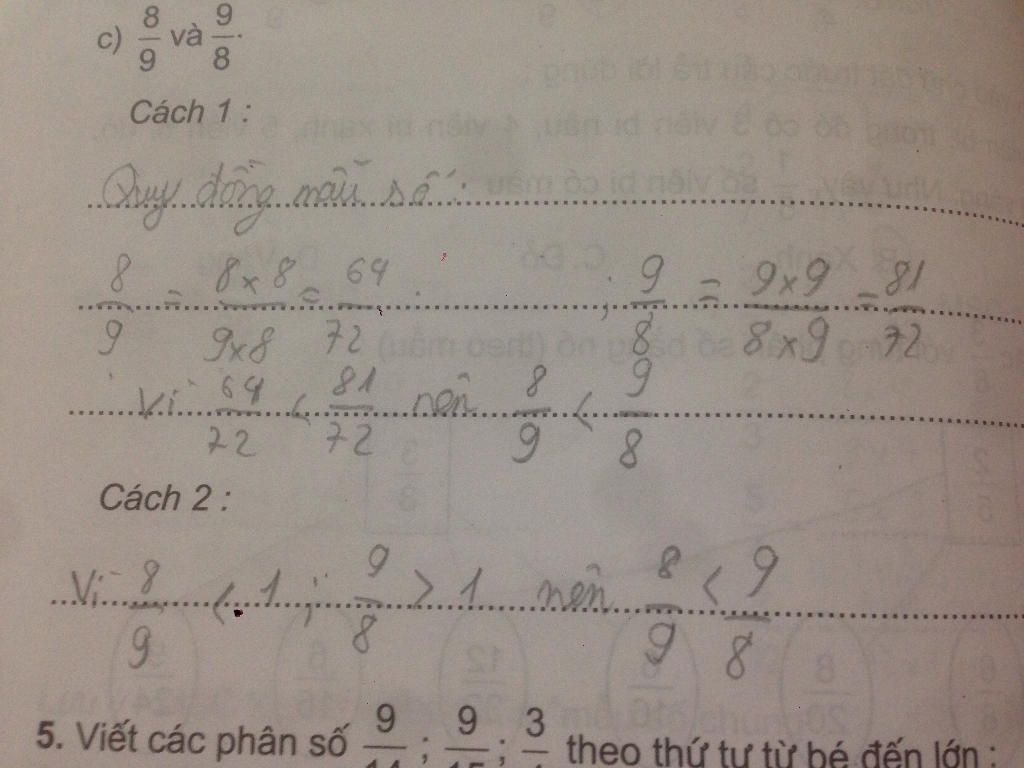 c) 8/9 và 9/8.
Cách 1 :
Quy đồng mẫu số :
8/9 = 8×8/9×8 = 64/72 ; 9/8 = 9×9/8×9 = 81/72
Vì 64/72 < 81/72 nên 8/9 < 9/8
Cách 2 :
Vì 8/9 < 1 ; 9/8 > 1 nên 8/9 < 9/8
5. Viết các phân số 9/14 ; 9/15 ; 3/ theo thứ tự từ bé đến lớn :